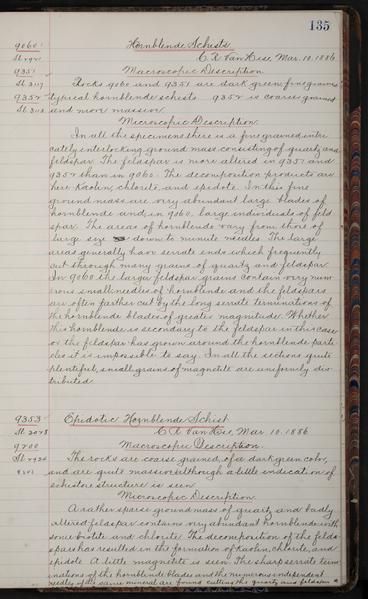 135
9060 Hornblende Schists.
C. R. Van Hise, Mar. 10. 1886
9351 Macroscopic Description.
Rocks 9060 and 9351 are dark green fine grained
9352 typical hornblende schists. 9352 is coarse grained
and more massive.
Microscopic Description.
In all the specimens there is a fine grained intri-
cately interlocking ground mass consisting of quartz and
feldspar. The feldspar is more altered in 9351 and
9352 than in 9060. The decomposition products are
here kaolin, chlorite, and epidote. In this fine
ground mass are very abundant large blades of
hornblende and, in 9060, large individuals of feld-
spar. The areas of hornblende vary from those of
large size down to minute needles. The large
areas generally have serrate ends which frequently
cut through many grains of quartz and feldspar.
In 9060 the larger feldspar grains contain very num-
erous small needles of hornblende and the feldspars
are often farther cut by the long serrate terminations of
the hornblende blades of greater magnitude. Whether
this hornblende is secondary to the feldspar in this case
or the feldspar has grown around the hornblende parti-
cles it is impossible to say. In all the sections quite
plentiful, small grains of magnetite are uniformly dis-
tributed.
9353 Epidotic Hornblende Schist.
St. 2078 C. R. Van Hise, Mar. 10. 1886
9200 Macroscopic Description.
The rocks are coarse grained, of a dark green color,
and are quite massive although a little indication of
schistose structure is seen.
Microscopic Description.
A rather sparse ground mass of quartz and badly
altered feldspar contains very abundant hornblende with
some biotite and chlorite. The decomposition of the felds-
pars has resulted in the formation of kaolin, chlorite, and
epidote. A little magnetite is seen. The sharp serrate term-
inations of the hornblende blades and the numerous independent
needles of the same mineral are found cutting the quartz and feldspar